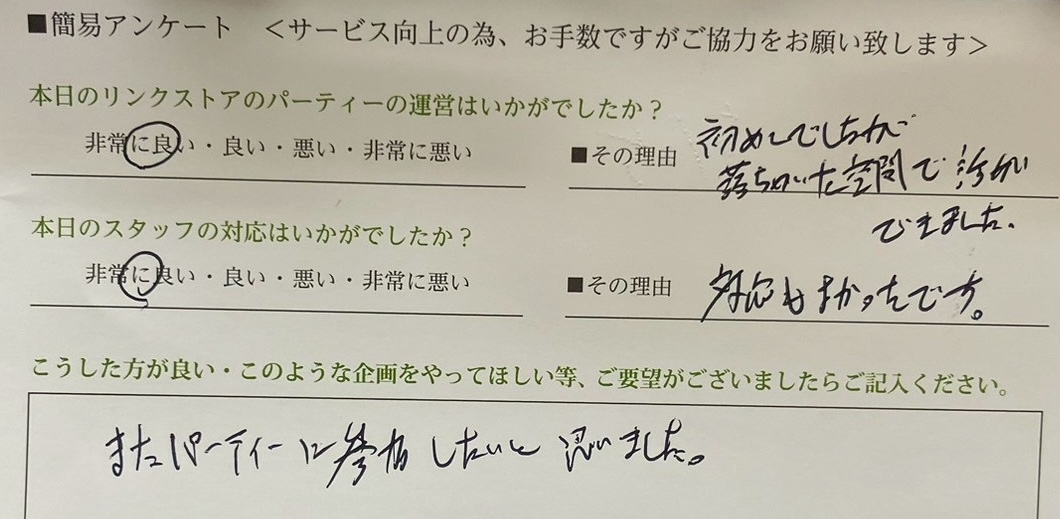 ■簡易アンケート ＜サービス向上の為、お手数ですがご協力をお願い致します＞
本日のリンクストアのパーティーの運営はいかがでしたか？
非常に良い・良い・悪い・非常に悪い
■その理由 初めてでしたが
落ちついた空間で
できました。
本日のスタッフの対応はいかがでしたか？
非常に良い・良い・悪い・非常に悪い
■その理由 対応もよかったです。
こうした方が良い・このような企画をやってほしい等、ご要望がございましたらご記入ください。
またパーティーに参加したいと思いました。